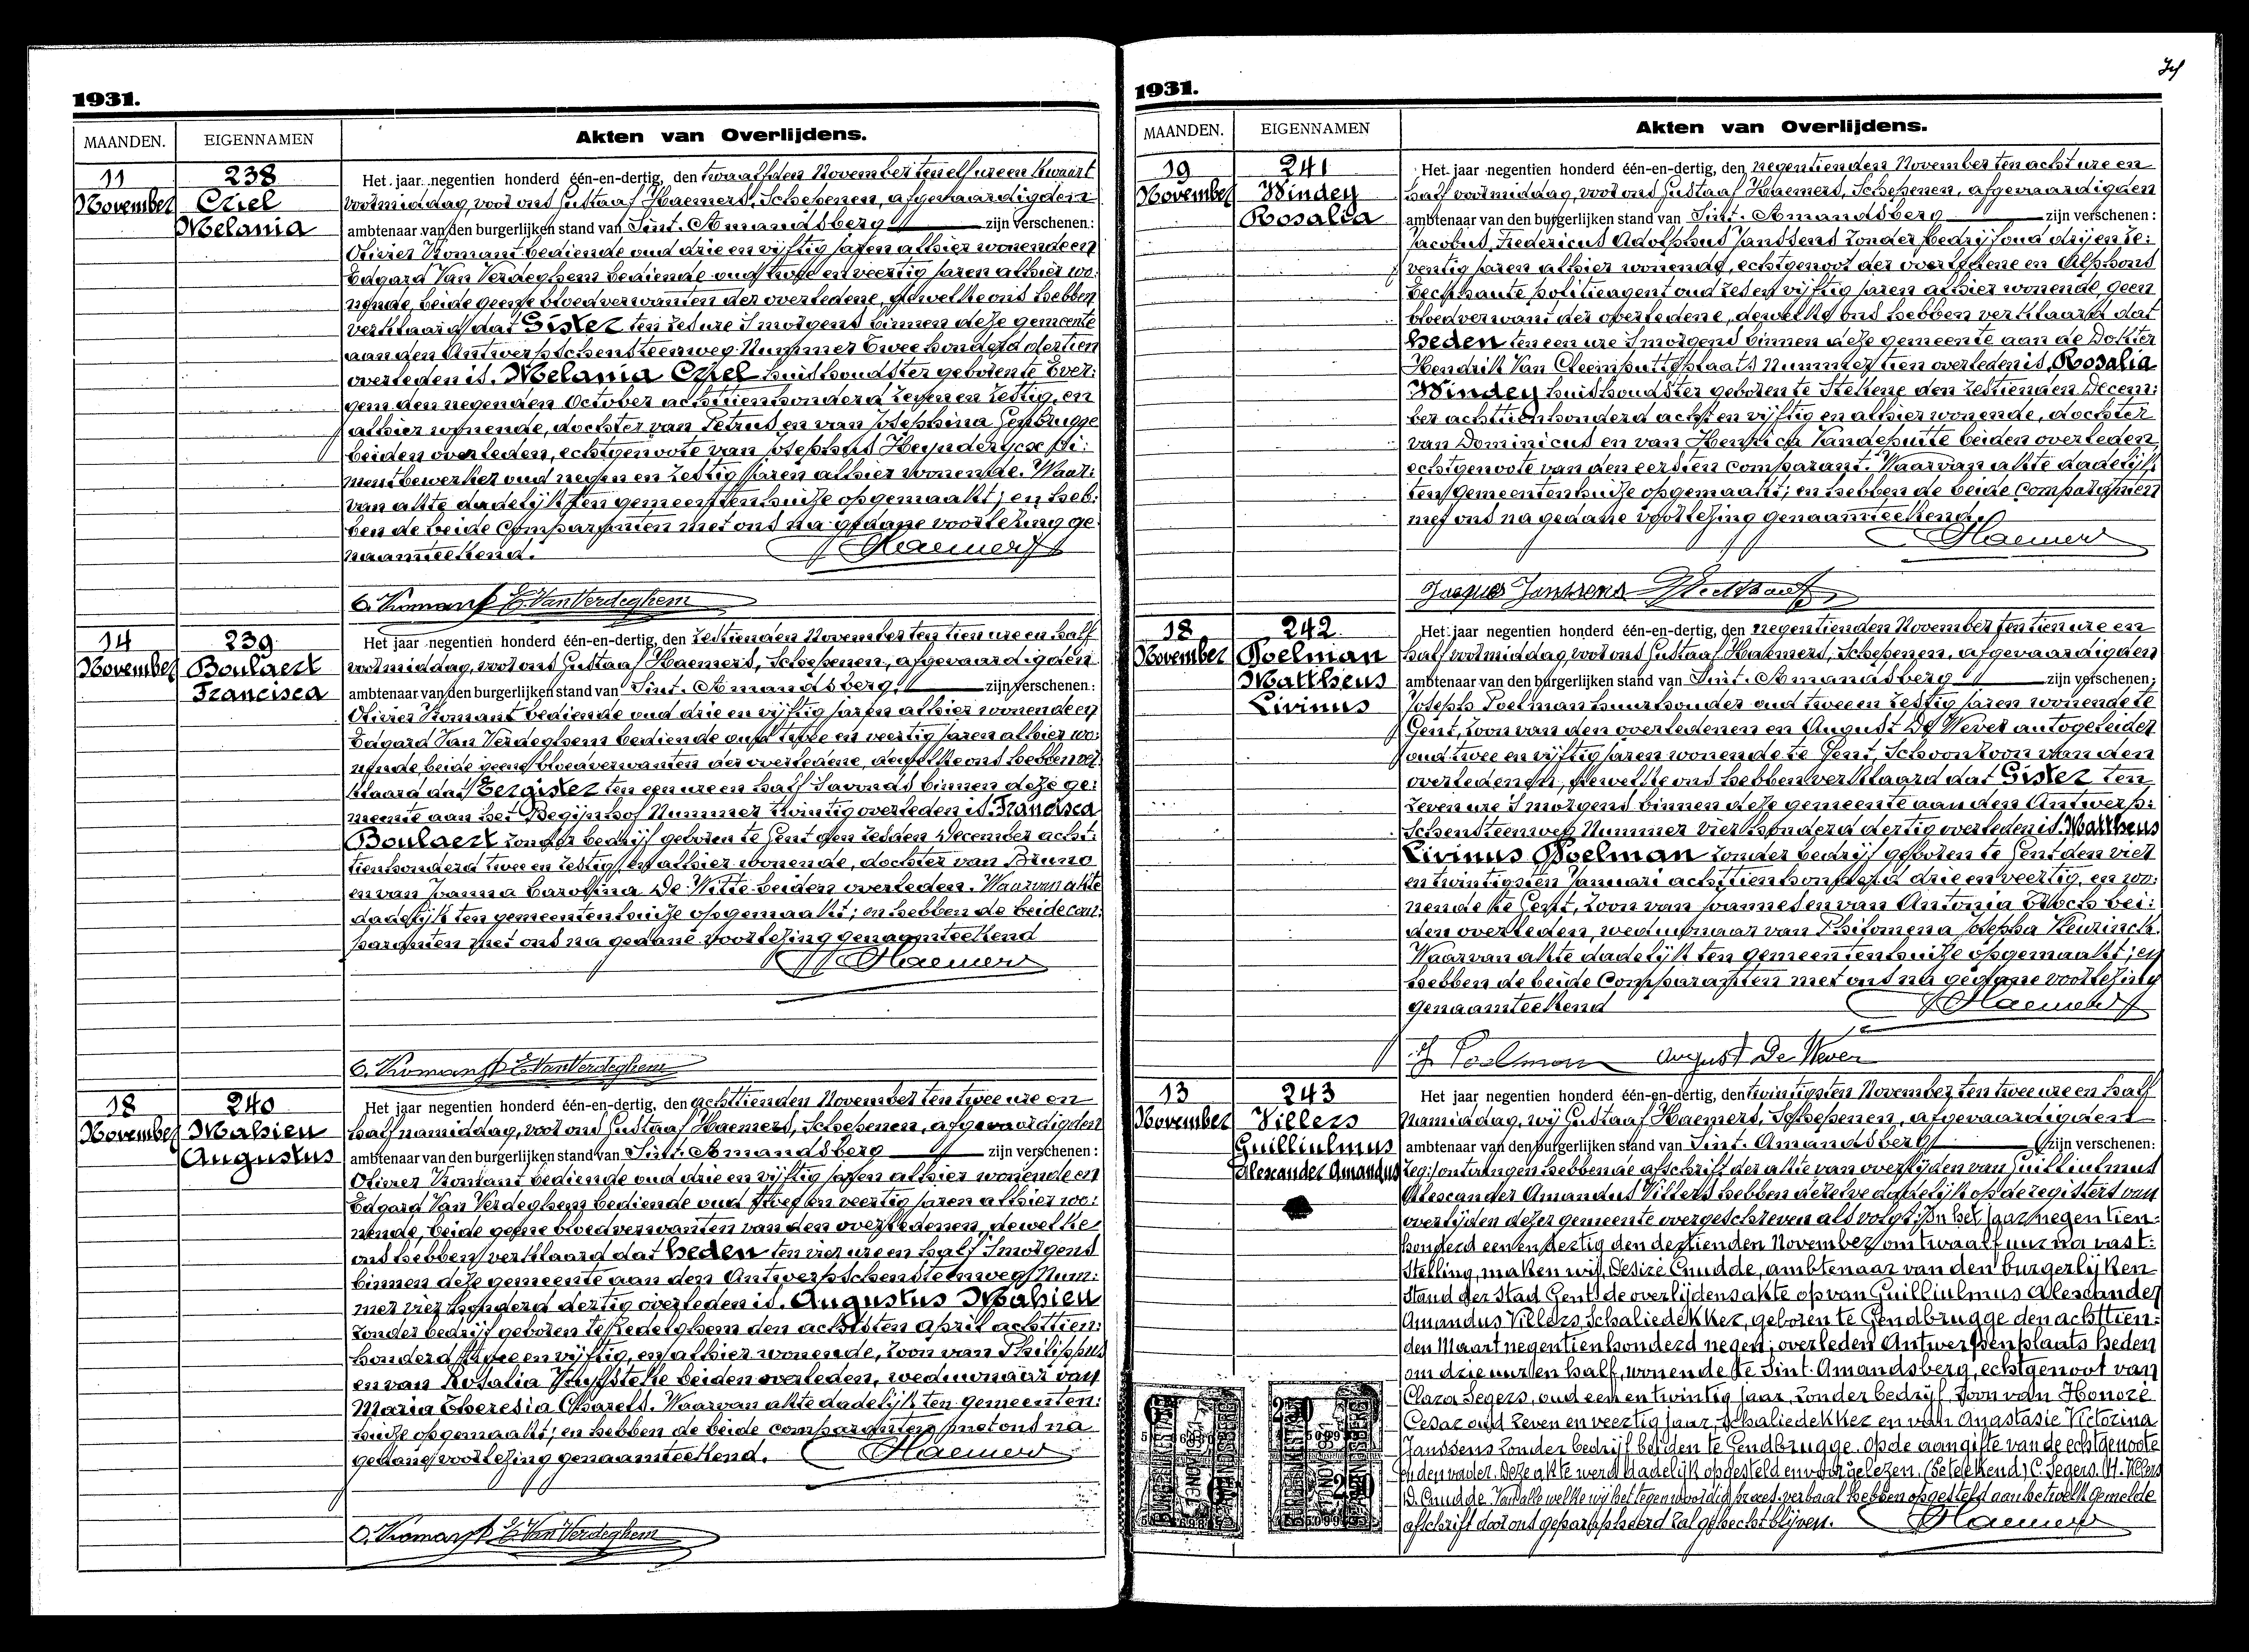 1931.
MAANDEN.
EIGENNAMEN
Akten van Overlijdens.
11
November
238
Criel
Melania
Het jaar negentien honderd één-en-dertig, den twaalfden November ten elf ure en kwart
voormiddag, voor ons Gustaaf Haemers, Schepenen, afgevaardigden
ambtenaar van den burgerlijken stand van Sint-Amandsberg zijn verschenen:
Olivier Kromant bediende oud drie en vijftig jaren alhier wonende en
Edgard Van Verdeghem bediende oud twee en veertig jaren alhier wo:
nende, beide geene bloedverwanten der overledene, dewelke ons hebben
verklaard dat Gister ten zes ure 's morgens binnen deze gemeente
aan den Antwerpschensteenweg Nummer Twee honderd dertien
overleden is. Melania Criel huishoudster geboren te Ever:
gem den negenden October achttienhonderd zeven en zestig, en
alhier wonende, dochter van Petrus en van Josephina Gentbrugge
beiden overleden, echtgenoote van Josephus Heynderycx Pi:
mentbewerker oud negen en zestig jaren alhier wonende. Waar:
van akte dadelijk ten gemeentenhuize opgemaakt; en heb:
ben de beide Comparanten met ons na gedane voorlezing ge
naamteekend.
Haemers
O. Kromant E. Van Verdeghem
14
November
239
Boulaert
Francisca
Het jaar negentien honderd één-en-dertig, den zestienden November ten tien ure en half
voormiddag, voor ons Gustaaf Haemers, Schepenen, afgevaardigden
ambtenaar van den burgerlijken stand van Sint-Amandsberg. zijn verschenen:
Olivier Kromant bediende oud drie en vijftig jaren alhier wonende en
Edgard Van Verdeghem bediende oud twee en veertig jaren alhier wo:
nende beide geene bloedverwanten der overledene, dewelke ons hebben ver:
klaard dat Eergister ten een ure en half 's avonds binnen deze ge:
meente aan het Begijnhof Nummer Twintig overleden is. Francisca
Boulaert zonder bedrijf geboren te Gent den zesden December acht:
tienhonderd twee en zestig, en alhier wonende, dochter van Bruno
en van Joanna Carolina De Witte beiden overleden. Waarvan akte
dadelijk ten gemeentenhuize opgemaakt; en hebben de beide com:
paranten met ons na gedane voorlezing genaamteekend
Haemers
O. Kromant E. Van Verdeghem
18
November
240
Mahieu
Augustus
Het jaar negentien honderd één-en-dertig, den achttienden November ten twee ure en
half namiddag, voor ons Gustaaf Haemers, Schepenen, afgevaardigden
ambtenaar van den burgerlijken stand van Sint-Amandsberg zijn verschenen:
Olivier Kromant bediende oud drie en vijftig jaren alhier wonende en
Edgard Van Verdeghem bediende oud twee en veertig jaren alhier wo:
nende, beide geene bloedverwanten van den overledenen, dewelke
ons hebben verklaard dat heden ten vier ure en half 's morgens
binnen deze gemeente aan den Antwerpschensteenweg Num:
mer vier honderd dertig overleden is. Augustus Mahieu
zonder bedrijf geboren te Ledeghem den achtsten April achttien:
honderd twee en vijftig, en alhier wonende, zoon van Philippus
en van Rosalia beiden overleden, weduwnaar van
Maria Theresia Charels. Waarvan akte dadelijk ten gemeenten:
huize opgemaakt; en hebben de beide comparanten met ons na
gedane voorlezing genaamteekend.
Haemers
O. Kromant E. Van Verdeghem
1931.
MAANDEN.
EIGENNAMEN
Akten van Overlijdens.
19
November
241
Windey
Rosalia
Het jaar negentien honderd één-en-dertig, den negentienden November ten acht ure en
half voormiddag, voor ons Gustaaf Haemers, Schepenen, afgevaardigden
ambtenaar van den burgerlijken stand van Sint-Amandsberg zijn verschenen:
Jacobus Fredericus Adolphus Janssens zonder bedrijf oud drij en ze:
ventig jaren alhier wonende, echtgenoot der overledene en Alphons
politieagent oud zes en vijftig jaren alhier wonende, geen
bloedverwant der overledene, dewelke ons hebben verklaard dat
heden ten een ure 's morgens binnen deze gemeente aan de Dokter
Hendrik Van Cleemputteplaats Nummer tien overleden is, Rosalia
Windey huishoudster geboren te Stekene den zestienden Decem:
ber achttienhonderd acht en vijftig en alhier wonende, dochter
van Dominicus en van Henrica Vandeputte beiden overleden,
echtgenoote van den eersten Comparant. Waarvan akte dadelijk
ten gemeentenhuize opgemaakt; en hebben de beide Comparanten
met ons na gedane voorlezing genaamteekend.
Haemers
Jacques Janssens
18
November
242.
Poelman
Mattheus
Livinus
Het jaar negentien honderd één-en-dertig, den negentienden November ten tien ure en
half voormiddag, voor ons Gustaaf Haemers, Schepenen, afgevaardigden
ambtenaar van den burgerlijken stand van Sint-Amandsberg zijn verschenen:
Joseph Poelman huurhouder oud twee en zestig jaren wonende te
Gent, zoon van den overledenen en August De Wever autogeleider
oud twee en vijftig jaren wonende te Gent, Schoonzoon van den
overledenen, dewelke ons hebben verklaard dat Gister ten
zeven ure 's morgens binnen deze gemeente aan den Antwerp:
schensteenweg Nummer vier honderd dertig overleden is. Mattheus
Livinus Poelman zonder bedrijf geboren te Gent den vier
en twintigsten Januari achttienhonderd drie en veertig, en wo:
nende te Gent, zoon van Joannes en van Antonia Block bei:
den overleden, weduwnaar van Philomena Josepha Keurinck.
Waarvan akte dadelijk ten gemeentenhuize opgemaakt; en
hebben de beide Comparanten met ons na gedane voorlezing
genaamteekend
Haemers
J. Poelman August De Wever
13
November
243
Villers
Guilliulmus
Alexander Amandus
Het jaar negentien honderd één-en-dertig, den twintigsten November ten twee ure en half
namiddag, wij Gustaaf Haemers, Schepenen, afgevaardigden
ambtenaar van den burgerlijken stand van Sint-Amandsberg zijn verschenen:
ontvangen hebbende afschrift der akte van overlijden van Guilliulmus
Alexander Amandus Villers hebben dezelve dadelijk op de registers van
overlijden dezer gemeente overgeschreven als volgt: In het jaar negentien:
honderd een en dertig den dertienden November om twaalf uur na vast:
stelling, maken wij, Desiré Cnudde, ambtenaar van den burgerlijken
stand der Stad Gent de overlijdensakte op van Guilliulmus Alexander
Amandus Villers, Schaliedekker, geboren te Gendbrugge den achttien:
den Maart negentienhonderd negen; overleden Antwerpenplaats heden
om drie uur en half, wonende te Sint-Amandsberg, echtgenoot van
Clara Segers, oud een en twintig jaar, zonder bedrijf, zoon van Honoré
Cesar oud zeven en veertig jaar, schaliedekker en van Anastasie Victorina
Janssens zonder bedrijf beiden te Gendbrugge. Op de aangifte van de echtgenoote
en den vader. Deze akte werd dadelijk opgesteld en voorgelezen. (Geteekend) C. Segers. H. Villers
D. Cnudde. Van alle welke wij het tegenwoordig proces-verbaal hebben opgesteld aan hetwelk gemelde
afschrift door ons geparapheerd zal gehecht blijven.
Haemers